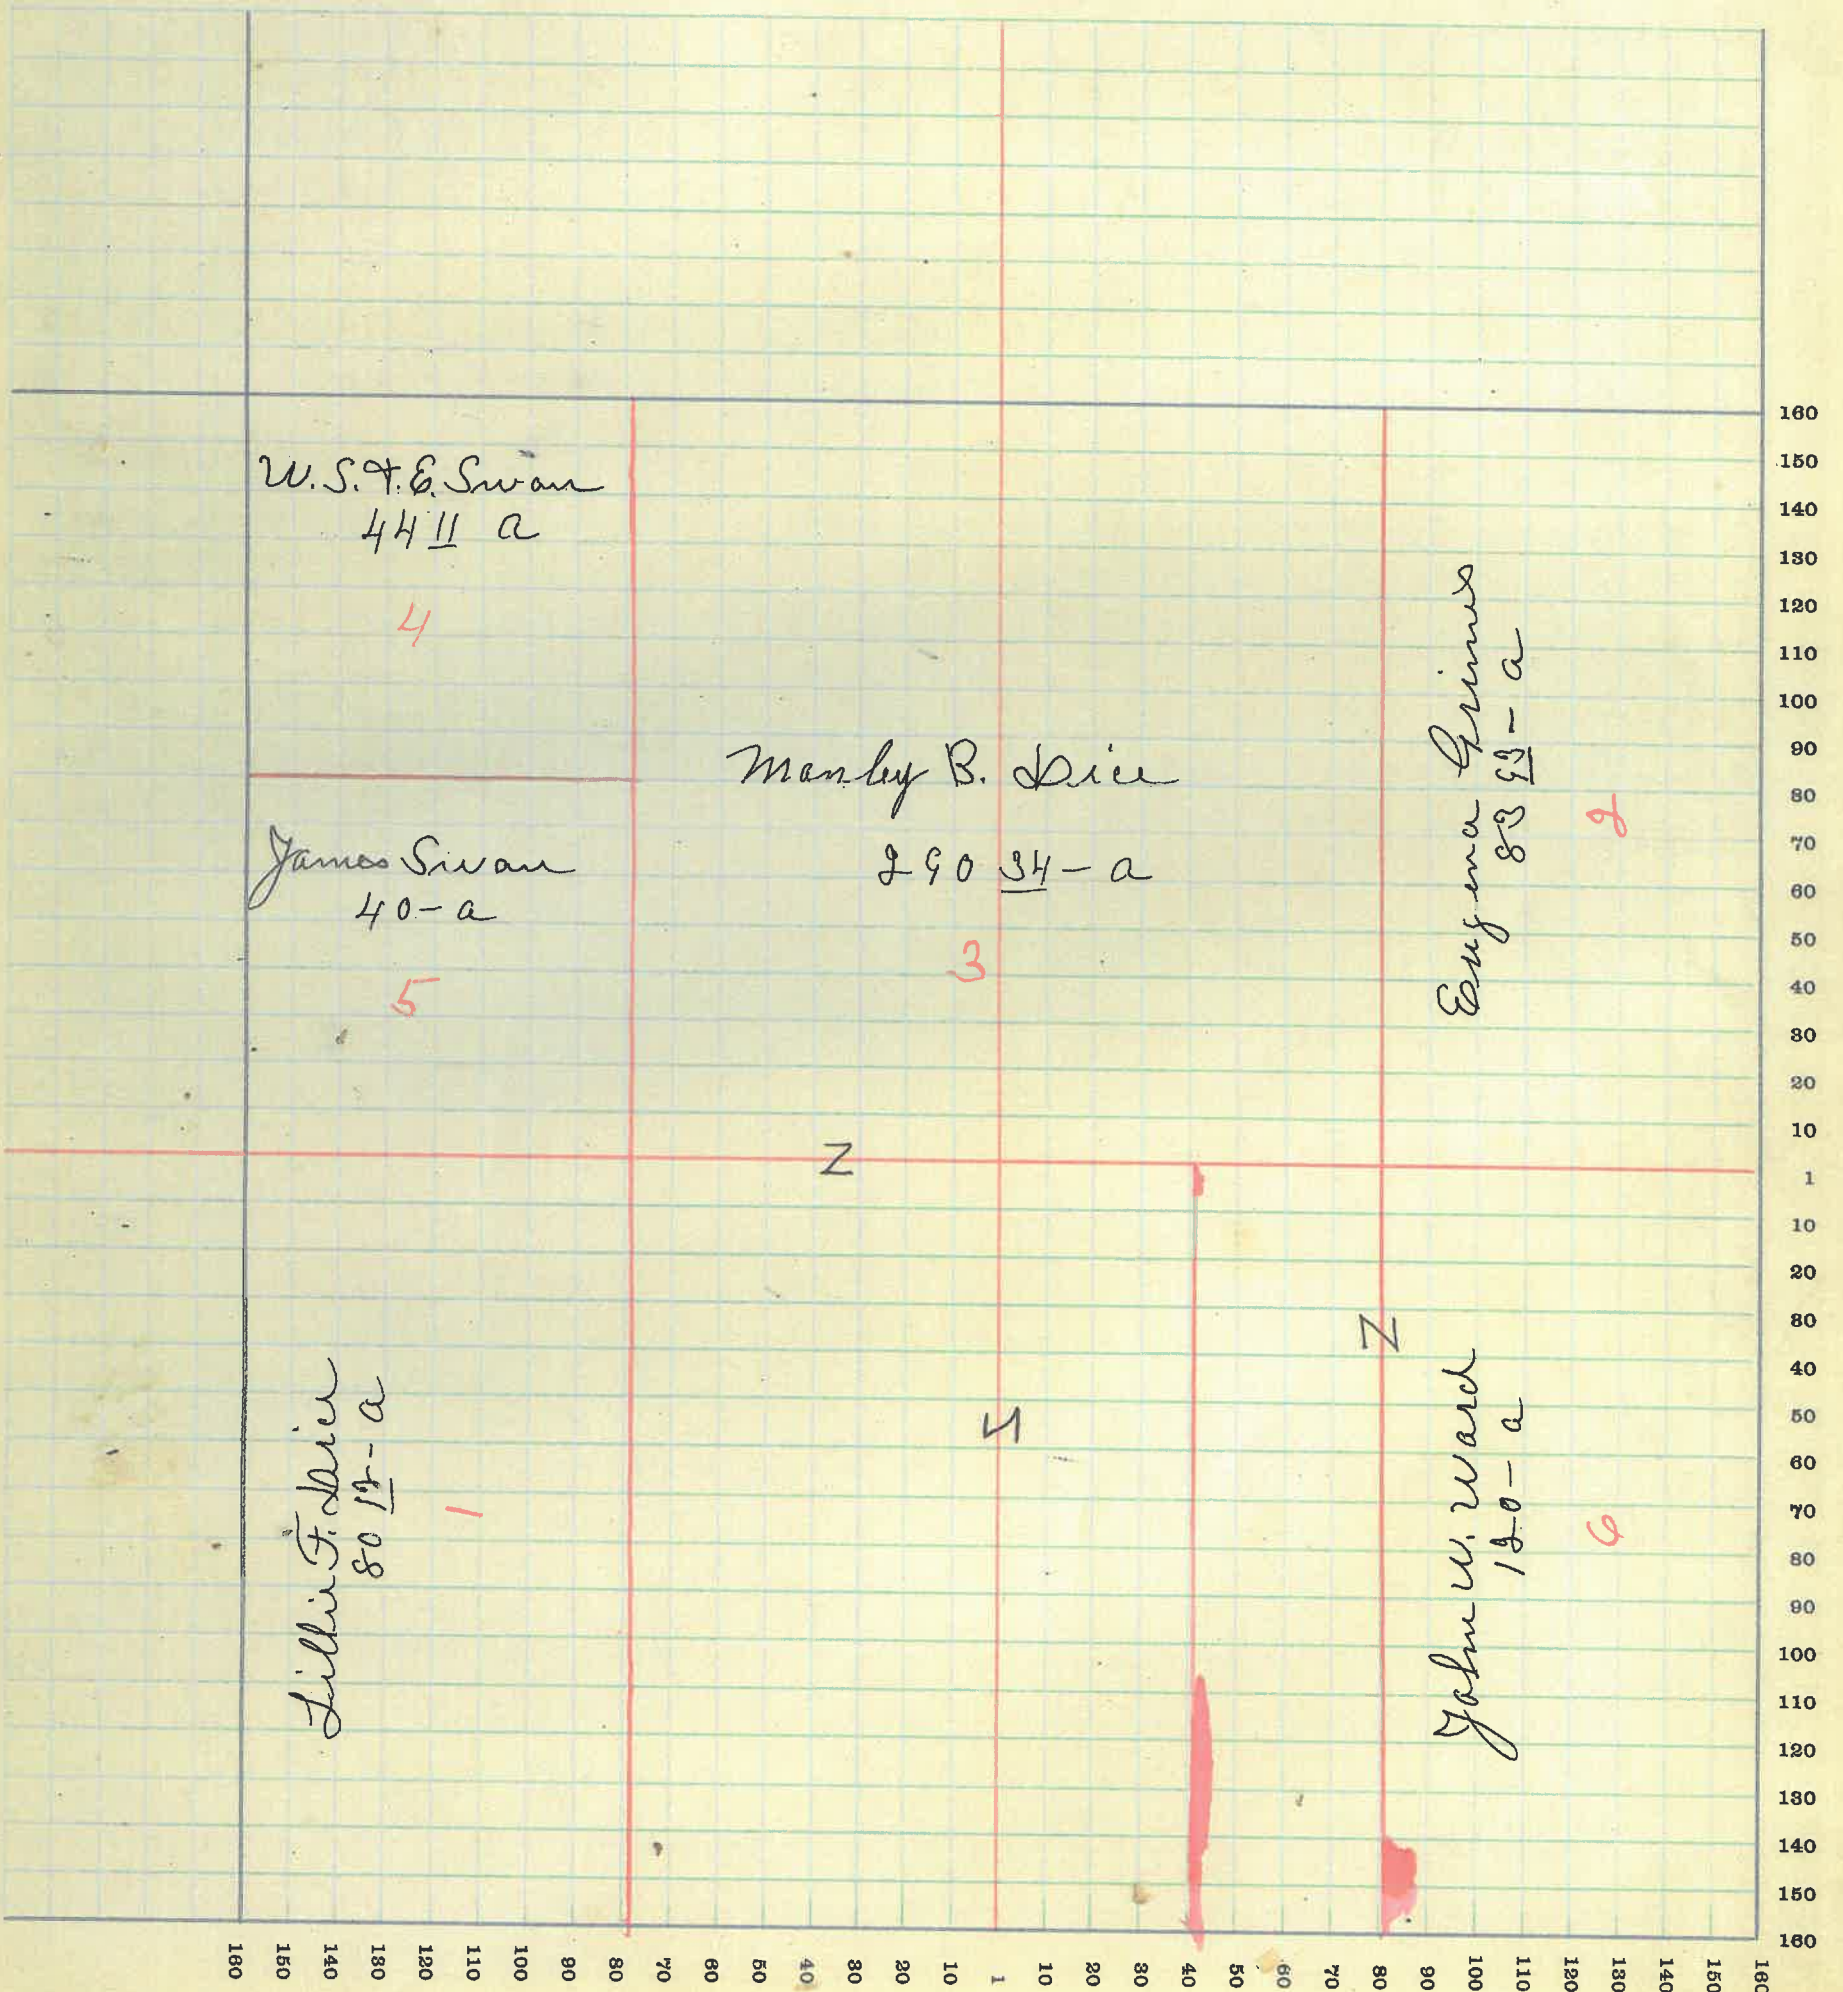 W.S. & E. Swan
44 11 a
4
James Swan
40 - a
5
Manley B. Dice
290 34 - a
3
Eugena Grimes
83 93 - a
2
Lillie F. Dice
80 12 - a
1
John W. Ward
120 - a
6
Z
Z
160
150
140
130
120
110
100
90
80
70
60
50
40
30
20
10
1
10
20
30
40
50
60
70
80
90
100
110
120
130
140
150
160
160 150 140 130 120 110 100 90 80 70 60 50 40 30 20 10 1 10 20 30 40 50 60 70 80 90 100 110 120 130 140 150 160